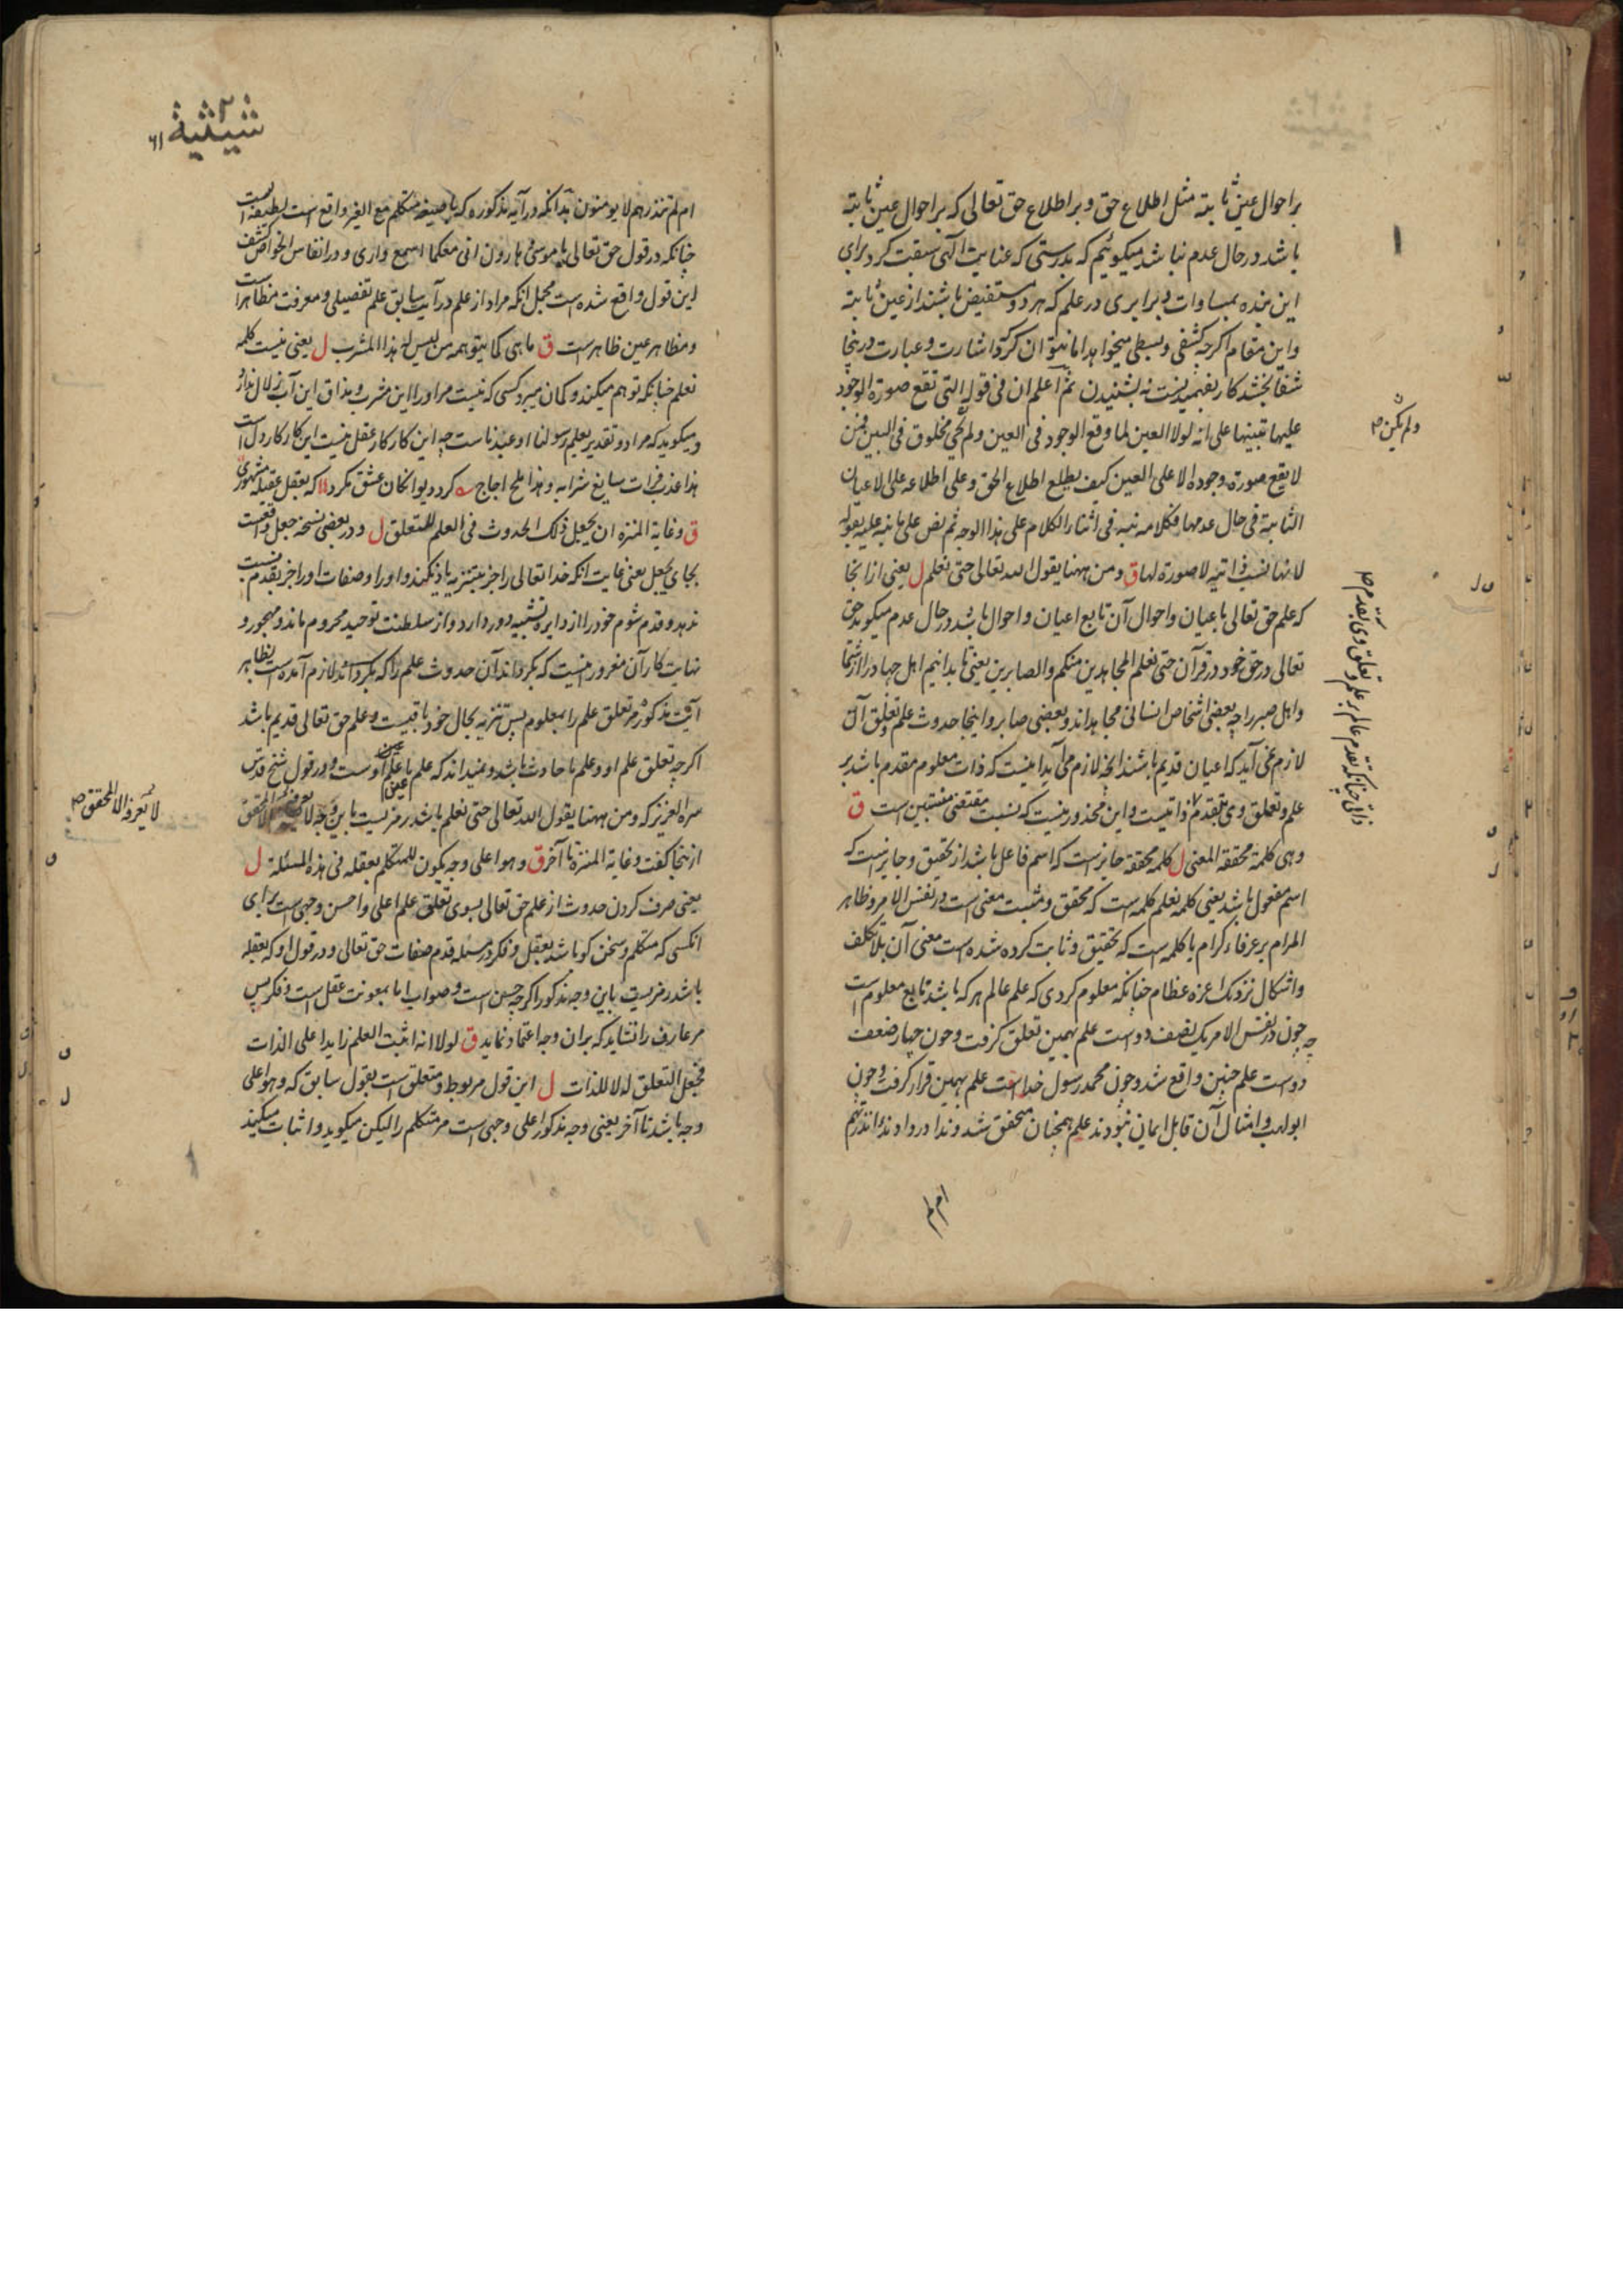 بر احوال عین ثابته مثل اطلاع حق و بر اطلاع حق تعالی که بر احوال عین ثابته
باشد در حال عدم نباشد میکوئیم که بدرستی که عنایت الهی سبقت کرد برای
این بنده بمساوات و برابری در علم که هر دو مستفیض باشند از عین ثابته
واین مقام اکرچه کشفی وبسطی میخواهد اما نتوان کرد اشارت و عبارت درینجا
شفا بخشد کار بفهمیدنست نه بشنیدن ثم اعلم ان فی قوله التی تقع صورة الوجود
علیها تنبیها علی انه لولا العین لما وقع الوجود فی العین ولم مخلوق فی البین فمن
لا یقع صورة وجوده الا علی العین کیف یطلع اطلاع الحق و علی اطلاعه علی الاعیان
الثابتة فی حال عدمها فکلامه نبه فی اثناء الکلام علی هذا الوجه ثم نص علی ما نبه علیه بقوله
لانها نسب ذاتیه لا صورة لها ق ومن ههنا یقول الله تعالی حتی نعلم ل یعنی از انجا
که علم حق تعالی باعیان واحوال آن تابع اعیان و احوال باشد در حال عدم میکوید حق
تعالی در حق خود در قرآن حتی نعلم المجاهدین منکم والصابرین یعنی تا بدانیم اهل جهاد را از شما
واهل صبر را چه بعضی اشخاص انسانی مجاهد اند و بعضی صابر و اینجا حدوث علم و تعلق آن
لازم نمی آید که اعیان قدیم باشند انچه لازم می آید اینست که ذات معلوم مقدم باشد بر
علم و تعلق وی بتقدم ذاتیست و این محذور نیست که نسبت مقتضی منتسبین است ق
وهی کلمة محققة المعنی ل کلمه محققه جایز است که اسم فاعل باشد از تحقیق و جایز است که
اسم مفعول باشد یعنی کلمه نعلم کلمه است که محقق و مثبت معنی است در نفس الامر و ظاهر
المرام بر عرفاء کرام یا کلمه است که تحقیق و ثابت کرده شده است معنی آن بلا تکلف
واشکال نزدیک اعزه عظام چنانکه معلوم کردی که علم عالم هر که باشد تابع معلوم است
چه چون در نفس الامر یک نصف دو است علم بهمین تعلق کرفت وچون چهار ضعف
دو است علم چنین واقع شد و چون محمد رسول خداست علم بهمین قرار کرفت و چون
ابولهب و امثال آن قابل ایمان نبودند علم همچنان متحقق شد و ندا در داوند ءانذرتهم
ام لم
ولم یکن صح
ذاتی چنانکه تقدم عالم بر علم و تعلق وی بتقدم صح
شیثیة
۶۱
ام لم تنذرهم لا یومنون بدانکه در آیه مذکوره که بصیغه متکلم مع الغیر واقع است لطیفه است
چنانکه در قول حق تعالی با موسی و هارون انی معکما اسمع واری و در انفاس الخواص کشف
این قول واقع شده است مجمل انکه مراد از علم در آیت سابق علم تفصیلی و معرفت مظاهر است
ومظاهر عین ظاهر است ق ما هی کما یتوهمه من لیس له هذا المشرب ل یعنی نیست کلمه
نعلم چنانکه توهم میکند و کمان میبرد کسی که نیست مر او را این مشرب و مذاق این آب زلال ندارد
ومیکوید که مراد و تقدیر یعلم رسولنا او عبدنا است چه این کار کار عقل نیست این کار کار دل است
هذا عذب فرات سایغ شرابه و هذا ملح اجاج کرد دیوانکان عشق مکرد که بعقل عقیله مشهوری
ق وغایة المنزه ان یجعل ذلک الحدوث فی العلم للتعلق ل و در بعضی نسخه جعل واقعست
بجای یجعل یعنی غایت انکه خدا تعالی را جز بتنزیه یاد نکند و او را و صفات او را جز بقدم نسبت
ندهد و قدم شوم خود را از دایره تشبیه دور دارد و از سلطنت توحید محروم ماند و مهجور و
نهایت کار آن مغرور اینست که بکرداند آن حدوث علم را که لازم آمده است بظاهر
آیت مذکوره مر تعلق علم را بمعلوم پس تنزیه بحال خود باقیست و علم حق تعالی قدیم باشد
اکرچه تعلق علم او و علم ما حادث باشد و نمیداند که علم ما عین علم اوست و در قول شیخ قدس
سره العزیز که ومن ههنا یقول الله تعالی حتی نعلم باشد رمزیست باین وجه لا یعرفه الا المحقق
از ینجا کفت وغایة المنزه تا آخر ق وهو اعلی وجه یکون للمتکلم بعقله فی هذه المسئلة ل
یعنی صرف کردن حدوث از علم حق تعالی بسوی تعلق علم اعلی و احسن وجهی است برای
انکسی که متکلم و سخن کو باشد بعقل و فکر در مسئله قدم صفات حق تعالی و در قول او که بعقله
باشد رمزیست باین وجه مذکور اکرچه حسن است و صواب اما بمعونت عقل است و فکر پس
مر عارف را نشاید که بران وجه اعتماد نماید ق لولا انه اثبت العلم زایدا علی الذات
فجعل التعلق له لا للذات ل این قول مربوط و متعلق است بقول سابق که وهو اعلی
وجه باشد تا آخر یعنی وجه مذکور اعلی وجهی است مر متکلم را لیکن میکوید و اثبات میکند
لا یعرفه الا المحقق صح